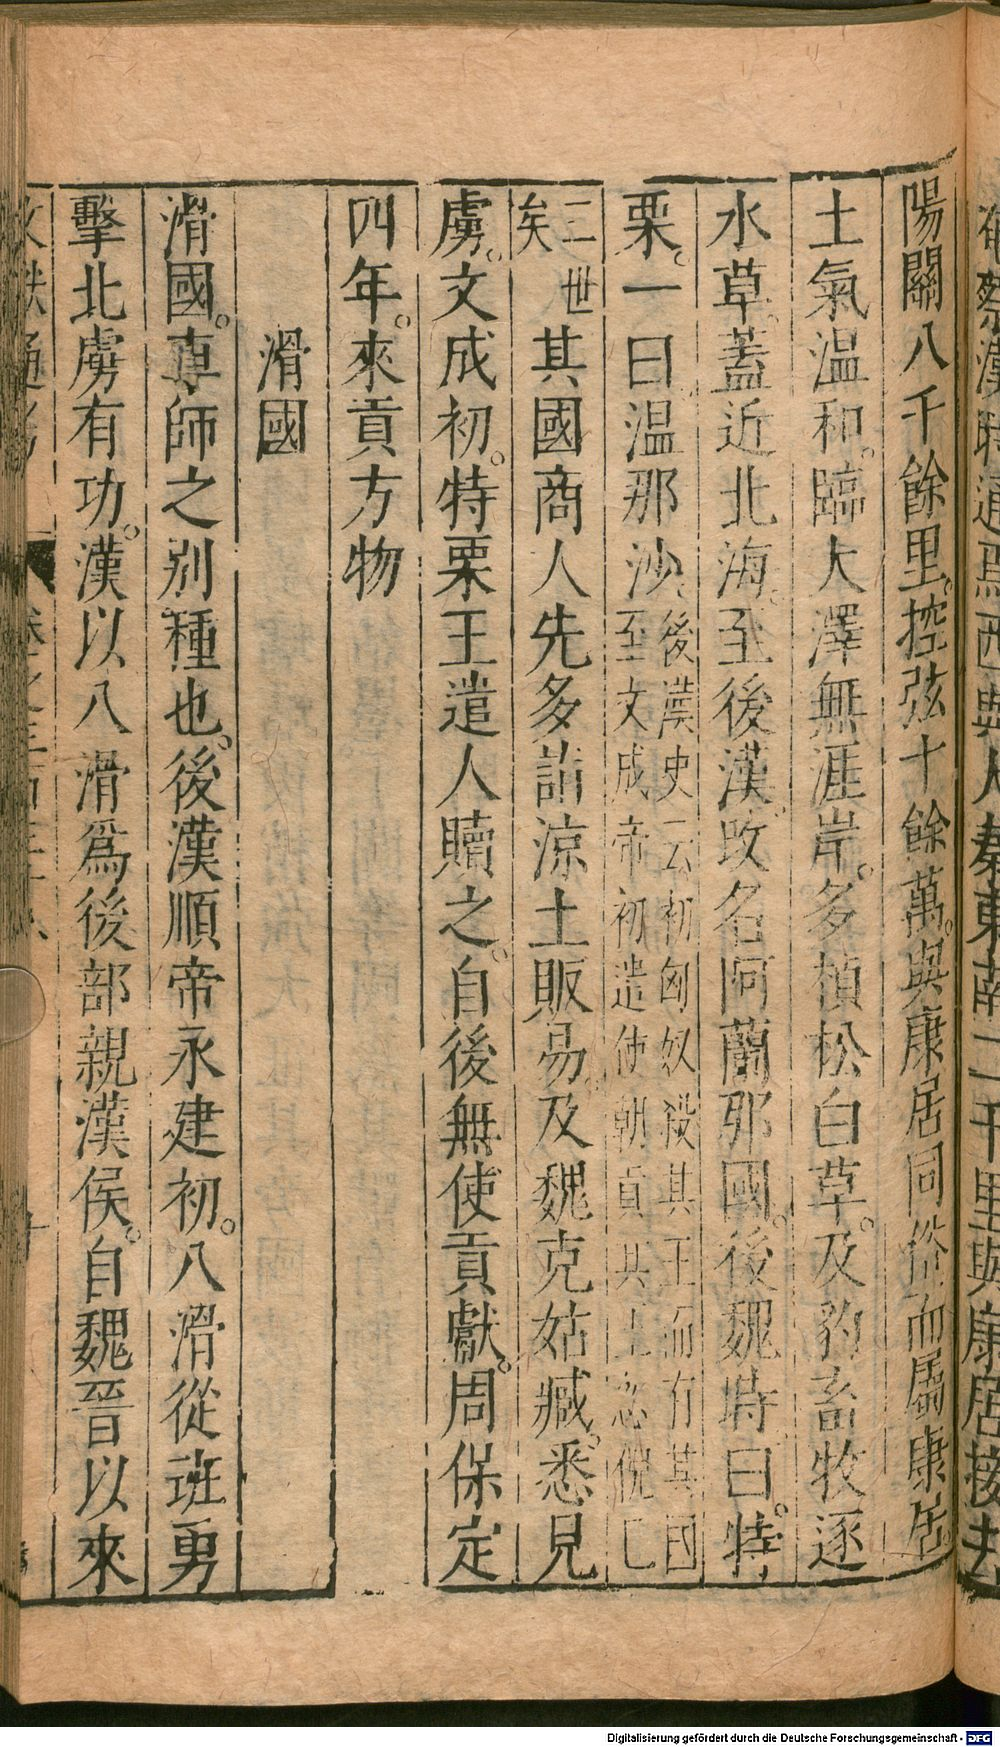 奄蔡漢時通焉西與人秦東南二千里與康居接去
陽關八千餘里。控弦十餘萬。與康居同俗而屬康居
土氣温和。臨大澤無涯岸。多楨松白草。及豹畜牧逐
水草。蓋近北海。至後漢。改名阿蘭那國。後魏時曰。特
栗。一曰温那沙、後漢史云初匈奴殺其王而有其國
至文成帝初遣使朝貢其王忽倪已
三世
矣
其國商人先多詣涼土販易。及魏克姑臧。悉見
虜。文成初。特栗王遣人贖之。自後無使貢獻。周保定
四年。來貢方物
滑國
滑國。車師之别種也。後漢順帝永建初。八滑從班勇
擊北虜有功。漢以八滑爲後部親漢侯。自魏晉以來
Digitalisierung gefördert durch die Deutsche Forschungsgemeinschaft - DFG